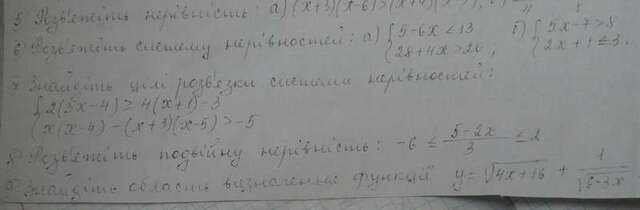 5 Розв'яжіть нерівність: а) (x+3)(x-6)>(x+4)(x
6 Розв'яжіть систему нерівностей: а) { 5-6x<13 б) { 5x-7>8
28+4x>20, 2x+1≤3
7 Знайдіть цілі розв'язки системи нерівностей:
{ 2(3x-4)≥4(x+1)-3
(x(x-4)-(x+3)(x-5)>-5
8 Розв'яжіть подвійну нерівність: -6 ≤ (5-2x)/3 ≤ 2
9 Знайдіть область визначення функції y=√4x+16 + 1/√6-3x